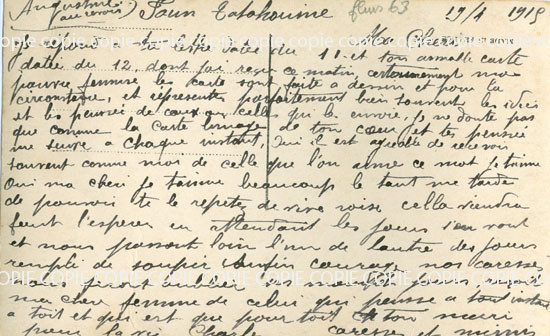 Augustine (au revoir) Taun Tatahouine fleurs 63 19/4 1915
Ma Chérie
Répond à ta lettre datée du 11 et ton aimable carte
datée du 12, dont j'ai reçu ce matin, certainement ma
pauvre femme les carte sont faite à dessin et pour la
circonstance, et représentes parfaitement bien souvent les idées
et les pensées de ceux ou celles qui les envoie, je ne doute pas
que comme la carte l'image de ton cœur et tes pensée
me suive a chaque instant, Oui il est agréable de recevoir
souvent comme moi de celle que l'on aime ce mot je t'aime
Oui ma cheri je t'aime beaucoup le tant me tarde
de pouvoir te le repeter de vive voise cella viendra
faut l'espérer en attendant les jours s'en vont
et nous passont loin l'un de lautre des jours
rempli de soupir enfin courage nos caresse
nous feront oublier ces mauvais jours, reçoit
ma cher femme de celui qui pensse a tout instant
a toit et qui est que pour toit ton mari
pour la vie Charle caresse et mimis
COPIE COPIE COPIE COPIE COPIE